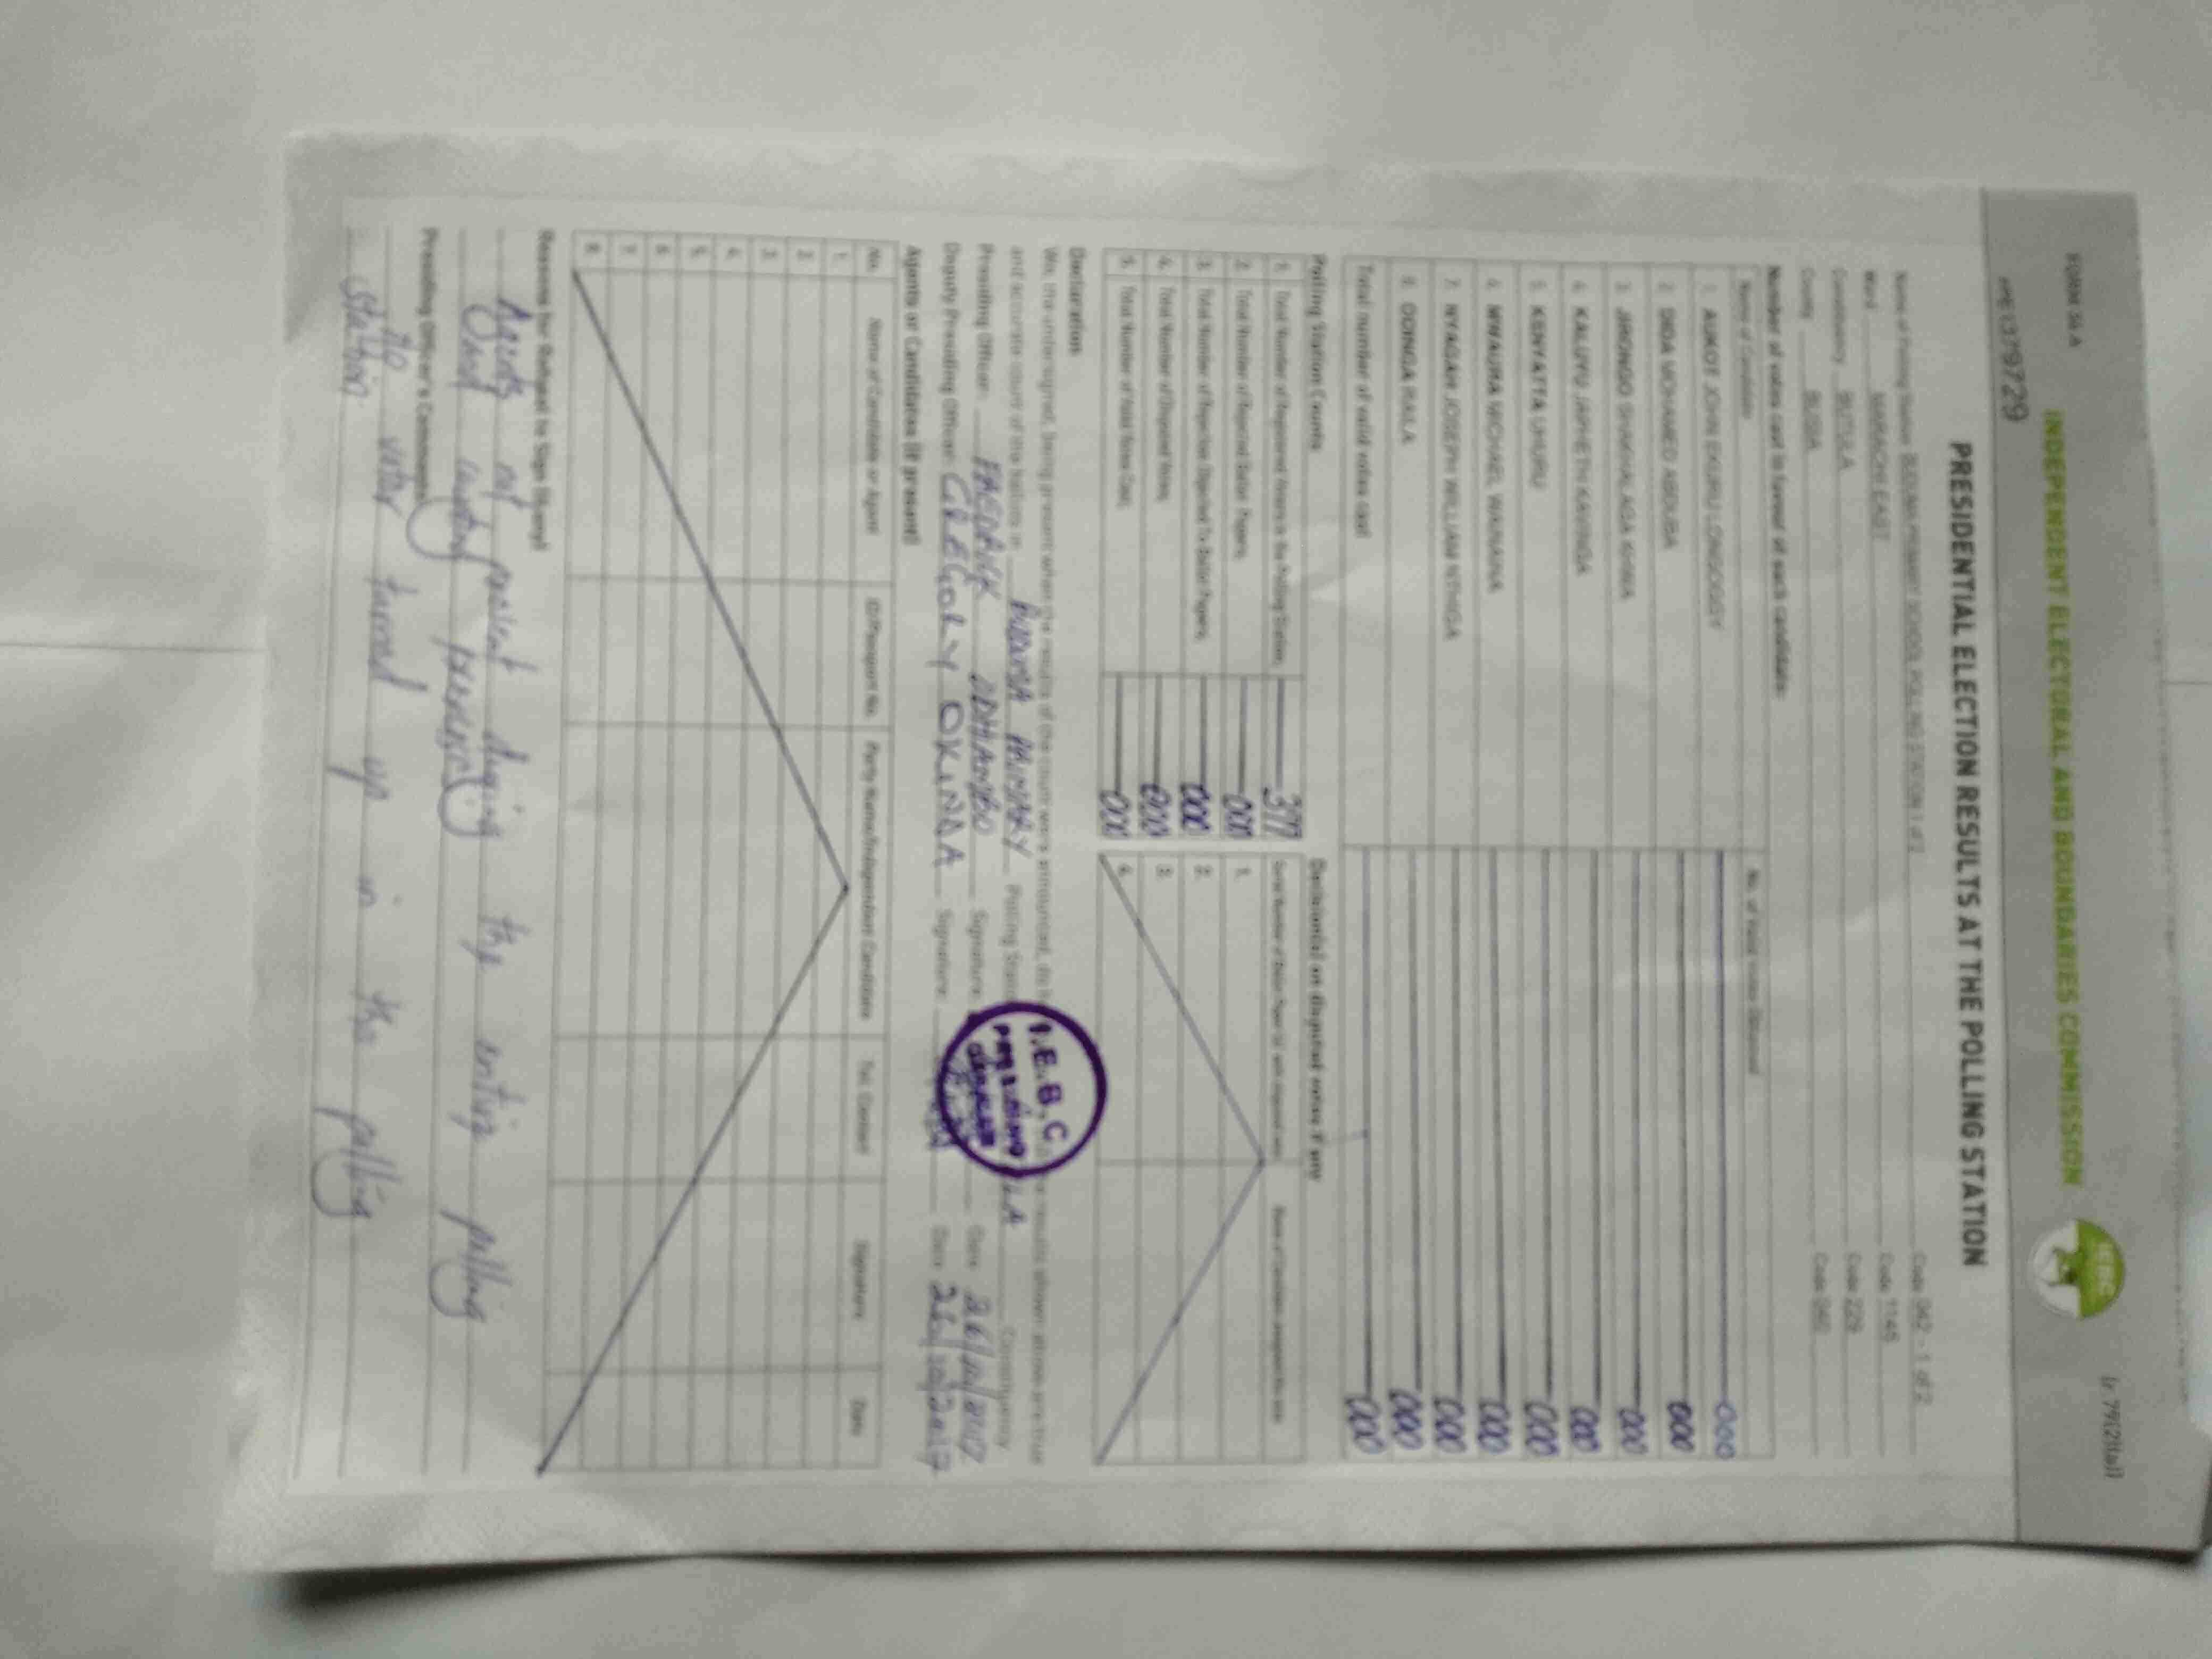 FORM 34 A
INDEPENDENT ELECTORAL AND BOUNDARIES COMMISSION
IEBC
PRESIDENTIAL ELECTION RESULTS AT THE POLLING STATION
Name of Polling Station PRIMARY SCHOOL POLLING STATION 1 of 2 Code 042 - 1 of 2
Ward MARACHI EAST Code 1145
Constituency BUTULA Code 229
County BUSIA Code 040
Number of votes cast in favour of each candidate:
Name of Candidate No. of Valid Votes Obtained
1. AUKOT JOHN EKURU LONGOGGY 000
2. DIDA MOHAMED ABDUBA 000
3. JIRONGO SHAKHALAGA KHWA 000
4. KALUYU JAPHETH KAVINGA 000
5. KENYATTA UHURU 000
6. MWAURA MICHAEL WAINAINA 000
7. NYAGAH JOSEPH WILLIAM NTHIGA 000
8. ODINGA RAILA 000
Total number of valid votes cast 000
Polling Station Counts
1. Total Number of Registered Voters in the Polling Station 377
2. Total Number of Rejected Ballot Papers 000
3. Total Number of Rejection Objected To Ballot Papers 000
4. Total Number of Disputed Votes 000
5. Total Number of Valid Votes Cast 000
Decision(s) on disputed votes if any
1.
2.
3.
4.
Declaration
We, the undersigned, being present when the results of the count were announced, do results shown above are true
and accurate count of the ballots in PRIMARY Polling Station Constituency
Presiding Officer: ODHIAMBO Signature: Date 26/10/2017
Deputy Presiding Officer: GREGORY OKINDA Signature: Date 26/10/2017
I.E.B.C
PRESIDING
OFFICER
Agents or Candidates (if present)
No. Name of Candidate or Agent ID/Passport No. Party Name/Independent Candidate Tel. Contact Signature Date
1.
2.
3.
4.
5.
6.
7.
8.
Reasons for Refusal to Sign (if any)
Agents not present during the entire polling
and counting
Presiding Officer's Comments
No voter turned up in the polling
station